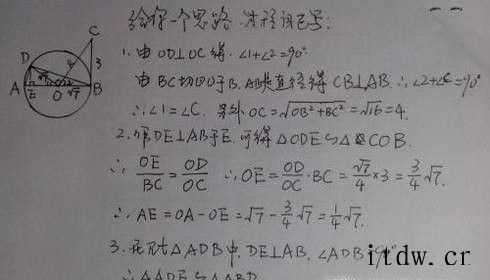 给你一个思路.过程自己写:
1. 由OD⊥OC得.∠1+∠2=90°
由BC切⊙O于B.AB是直径得CB⊥AB.∴∠2+∠C=90°
∴∠1=∠C. 另外OC=√OB²+BC²=√16=4.
2. 作DE⊥AB于E.可得△ODE∽△COB.
∴ OE/BC=OD/OC ∴OE=OD/OC·BC=√7/4×3=3/4√7.
∴AE=OA-OE=√7-3/4√7=1/4√7.
3. 在Rt△ADB中.DE⊥AB,∠ADB
∴△ADE∽△ABD
C
D
4
3
√7
A
E
O
√7
B
itdw.cr